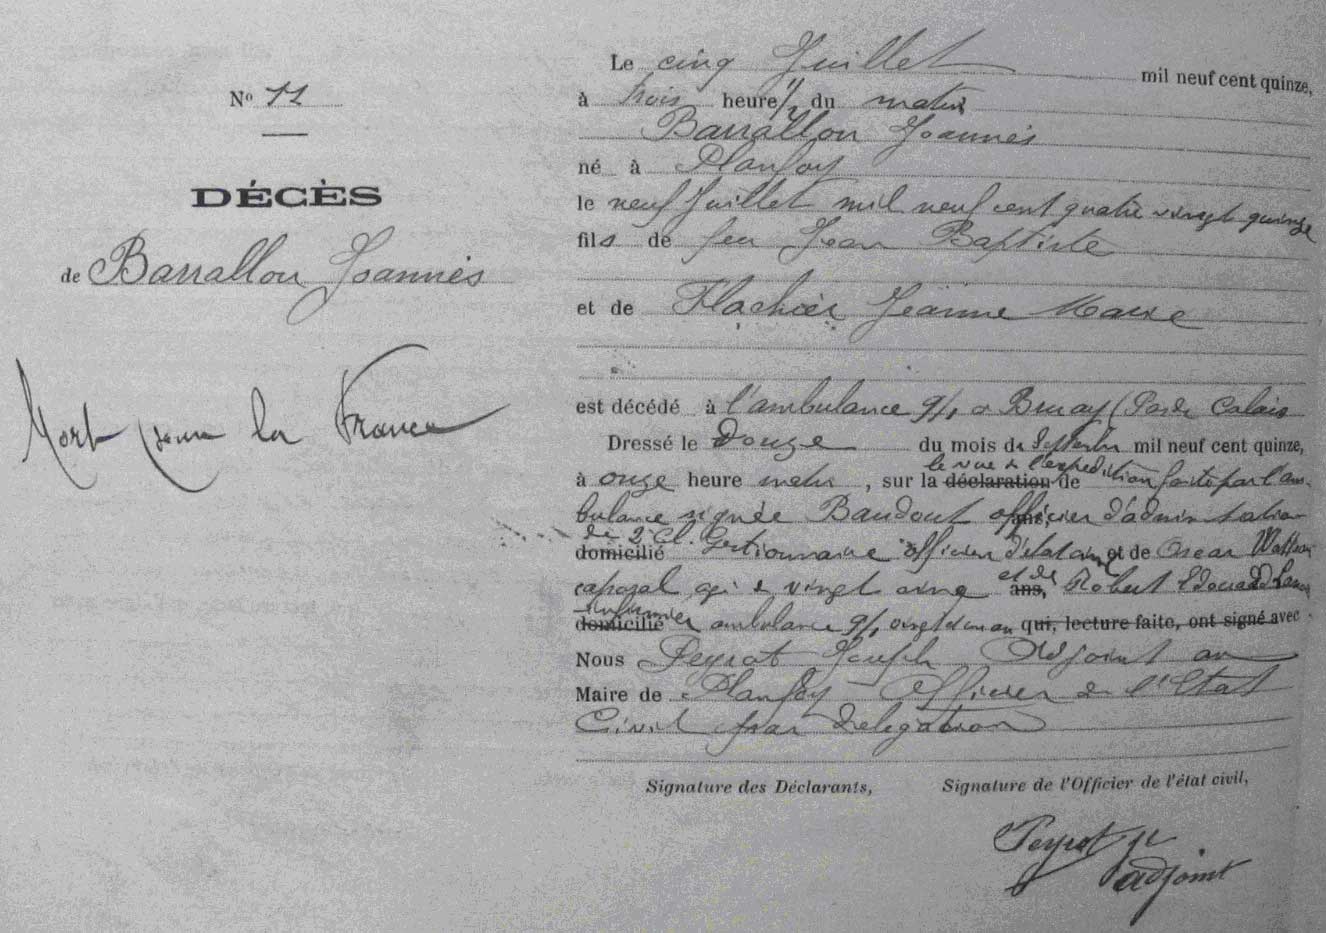 Nº 11
DÉCÈS
de Barrallon Joannès
Mort pour la France
Le cinq Juillet mil neuf cent quinze,
à trois heure 1/2 du matin
Barrallon Joannès
né à Planfoy
le neuf Juillet mil neuf cent quatre vingt quinze
fils de feu Jean Baptiste
et de Flachier Jeanne Marie
est décédé à l'ambulance 9/1 a Bruay (Pas de Calais
Dressé le Douze du mois de Septembre mil neuf cent quinze,
à onze heure matin, sur la déclaration de la vue de l'expédition faite par l'am-
bulance signée Baudout ans, officier d'administration
domicilié de 2 Cl. Gestionnaire officier d'état civil et de Oscar
caporal agé de vingt cinq ans, et de Robert Edouard
domicilié infirmier ambulance 9/1 vingt un an qui, lecture faite, ont signé avec
Nous Peyrot Joseph Adjoint au
Maire de Planfoy Officier de l'Etat
Civil par délégation
Signature des Déclarants,
Signature de l'Officier de l'état civil,
Peyrot
adjoint